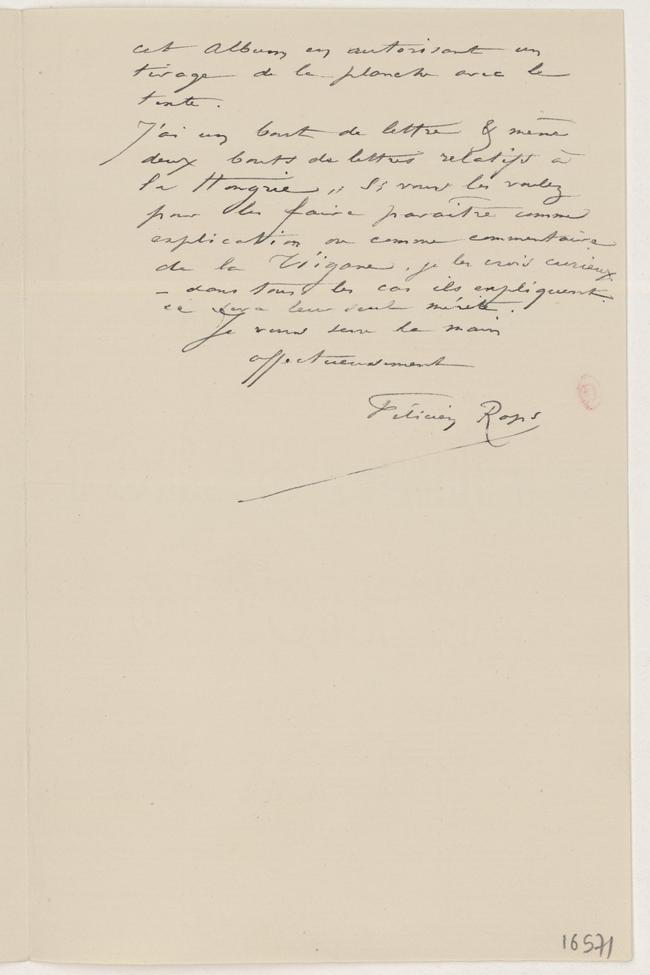 cet album en autorisant un
tirage de la planche avec le
texte.
J'ai un bout de lettre & même
deux bouts de lettres relatifs à
la Hongrie, si vous les voulez
pour les faire paraître comme
explication ou comme commentaire
de la Tzigane, je les crois curieux
– dans tous les cas ils expliquent.
ce sera leur seul mérite.
Je vous serre la main
affectueusement
Félicien Rops
16571